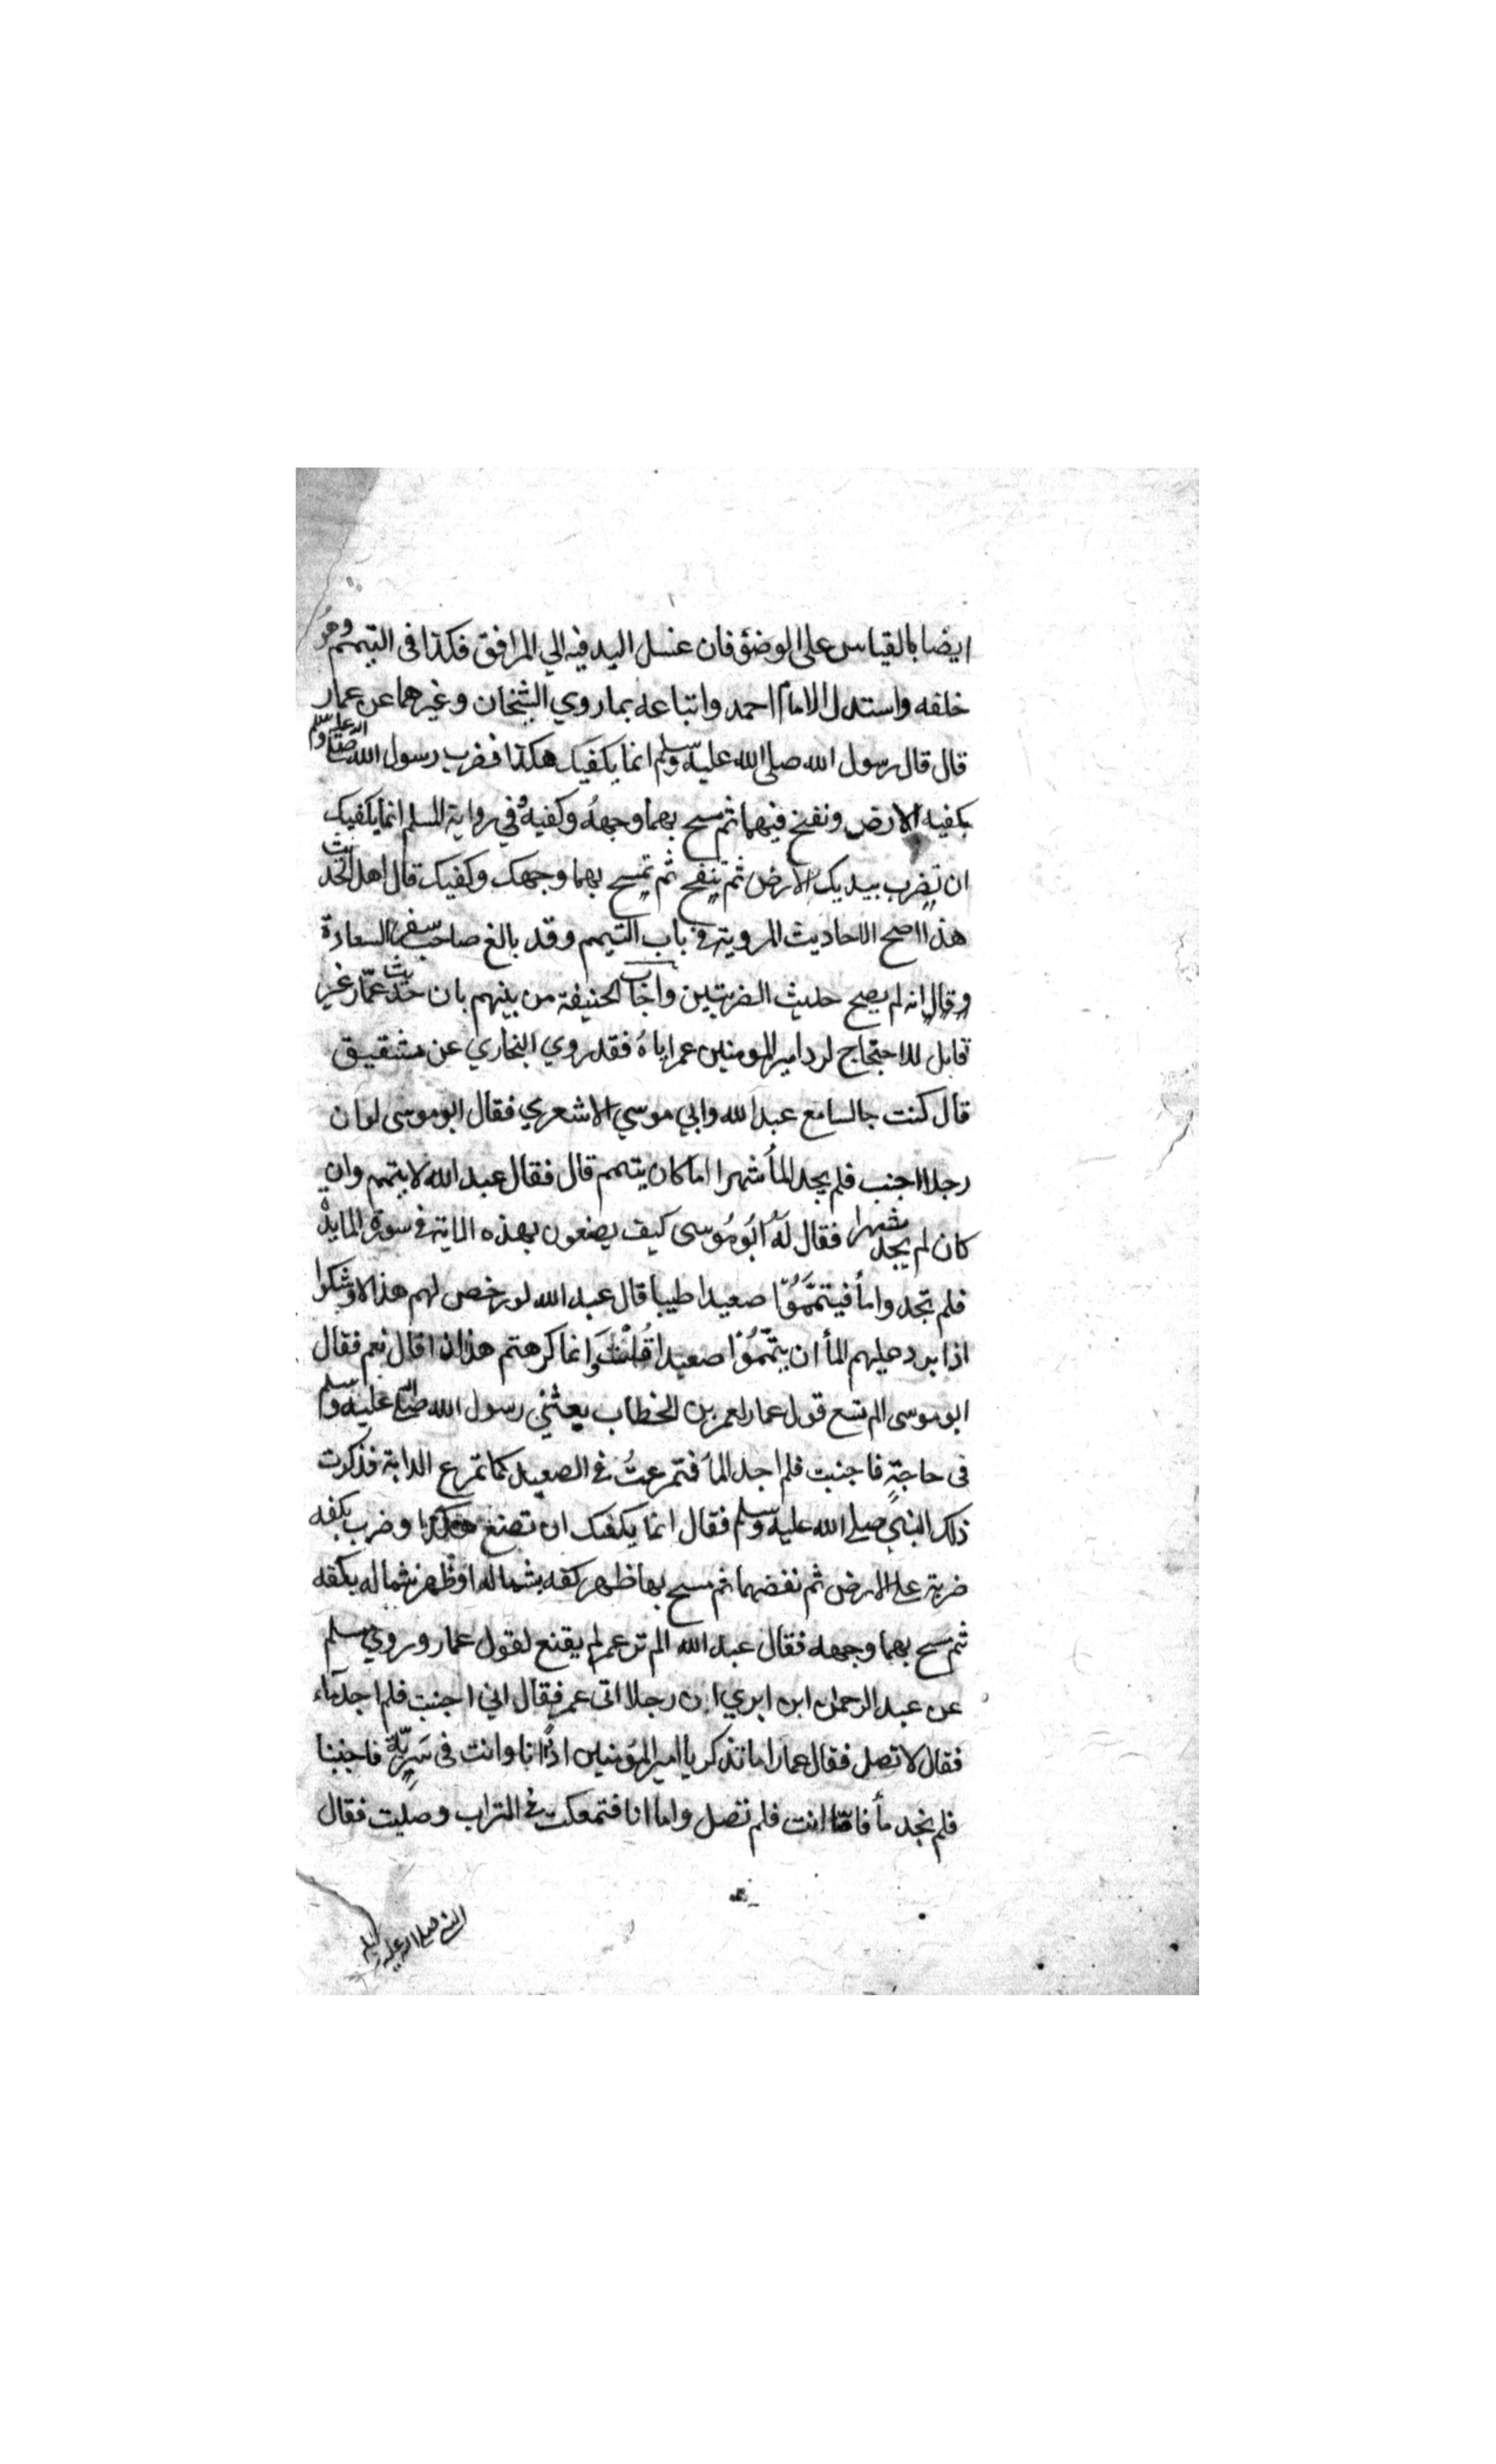 ايضا بالقياس على الوضؤ فان غسل اليد فيه الي المرافق فكذا فى التيمم وهو
خلفه واستدل الامام احمد واتباعه بما روي الشيخان وغيرهما عن عمار
قال قال رسول الله صلى الله عليه وسلم انما يكفيك هكذا فضرب رسول الله صلى الله عليه وسلم
بكفيه الارض ونفخ فيهما ثم مسح بهما وجهه وكفيه وفي رواية المسلم انما يكفيك
ان تضرب بيديك الارض ثم تنفخ ثم تمسح بهما وجهك وكفيك قال اهل الحديث
هذا اصح الاحاديث المروية في باب التيمم وقد بالغ صاحب سفر السعادة
وقال انه لم يصح حديث الضربتين واجاب الحنيفة من بينهم بان حديث عمّار غير
قابل للاحتجاج لرد امير المومنين عمر اياهُ فقد روي البخاري عن شقيق
قال كنت جالسا مع عبد الله وابي موسي الاشعري فقال ابو موسى لو ان
رجلا اجنب فلم يجد المأ شهرا اما كان يتيمم قال فقال عبد الله لا يتيمم وان
كان لم يجد شهرا فقال له ابُو مُوسى كيف يصنعون بهذه الاية في سورة المايدة
فلم تجدوا مأ فيتمَّمُوا صعيدا طيبا قال عبد الله لو رخص لهم هذا لاوشكوا
اذا برد عليهم المأ ان يتمّمُوا صعيدا قُلْتُ وانما كرهتم هذا لذا قال نعم فقال
ابو موسى الم تسع قول عمار لعمر بن الخطاب بعثني رسول الله صلى الله عليه وسلم
فى حاجةٍ فاجنبت فلم اجد المأ فتمرعتُ في الصعيد كما تمرع الدابة فذكرت
ذلك للنبي صلي الله عليه وسلم فقال انما يكفيك ان تصنع هكذا وضرب بكفه
ضربة على الارض ثم نفضهما ثم مسح بها ظهر كفه بشماله او ظهر شماله بكفه
ثم مسح بهما وجهه فقال عبد الله الم تر عمر لم يقنع لقول عمار وروي مسلم
عن عبد الرحمن ابن ابزي ان رجلا اتى عمر فقال اني اجنبت فلم اجد ماء
فقال لا تصل فقال عمار اما تذكر يا امير المؤمنين اذ انا وانت فى سَرِيّة فاجنبنا
فلم نجد مأ فامّا انت فلم تصل واما انا فتمعكت في التراب وصليت فقال
النبي صلى الله عليه وسلم